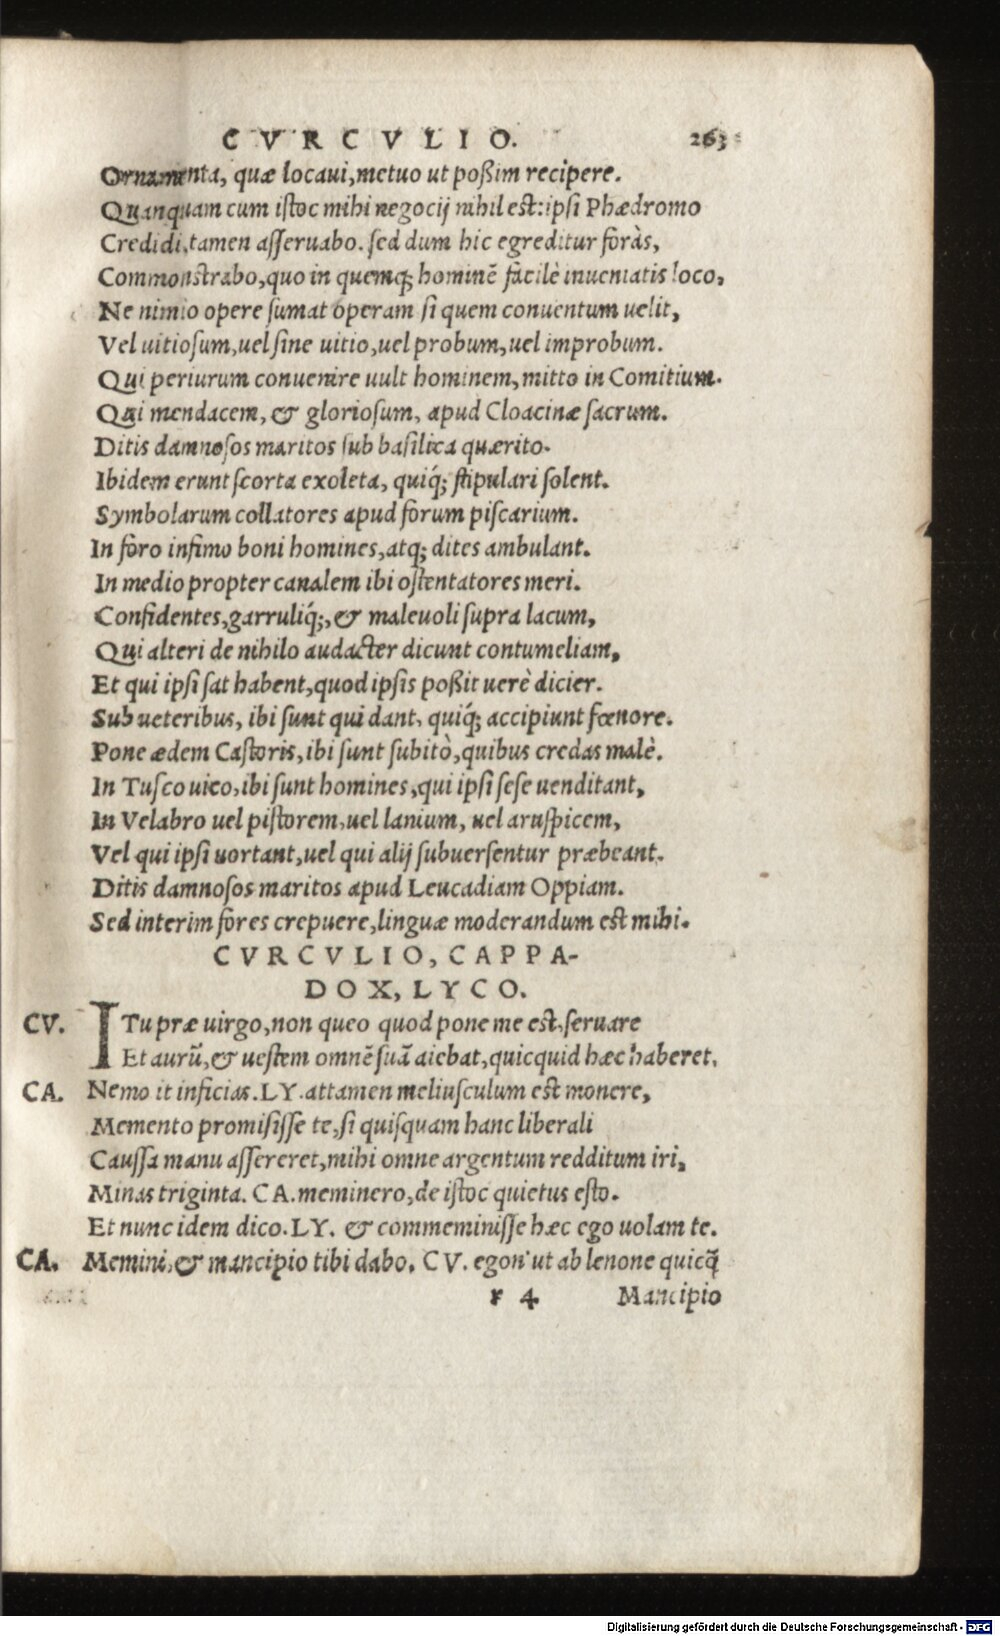 CVRCVLIO. 263
Ornamenta, quæ locaui, metuo ut poßim recipere.
Quanquam cum istoc mihi negocij nihil est: ipsi Phædromo
Credidi, tamen asseruabo. sed dum hic egreditur foràs,
Commonstrabo, quo in quemq; hominẽ facilè inueniatis loco,
Ne nimio opere sumat operam si quem conuentum uelit,
Vel uitiosum, uel sine uitio, uel probum, uel improbum.
Qui periurum conuenire uult hominem, mitto in Comitium.
Qui mendacem, & gloriosum, apud Cloacinæ sacrum.
Ditis damnosos maritos sub basilica quærito.
Ibidem erunt scorta exoleta, quiq́; stipulari solent.
Symbolarum collatores apud forum piscarium.
In foro infimo boni homines, atq; dites ambulant.
In medio propter canalem ibi ostentatores meri.
Confidentes, garruliq́;, & maleuoli supra lacum,
Qui alteri de nihilo audacter dicunt contumeliam,
Et qui ipsi sat habent, quod ipsis poßit uerè dicier.
Sub ueteribus, ibi sunt qui dant, quiq́; accipiunt fœnore.
Pone ædem Castoris, ibi sunt subitò, quibus credas malè.
In Tusco uico, ibi sunt homines, qui ipsi sese uenditant,
In Velabro uel pistorem, uel lanium, uel aruspicem,
Vel qui ipsi uortant, uel qui alij subuersentur præbeant.
Ditis damnosos maritos apud Leucadiam Oppiam.
Sed interim fores crepuere, linguæ moderandum est mihi.
CVRCVLIO, CAPPA-
DOX, LYCO.
CV. I Tu præ uirgo, non queo quod pone me est, seruare
Et aurũ, & uestem omnẽ suã aiebat, quicquid hæc haberet.
CA. Nemo it inficias. LY. attamen meliusculum est monere,
Memento promisisse te, si quisquam hanc liberali
Caussa manu assereret, mihi omne argentum redditum iri,
Minas triginta. CA. meminero, de istoc quietus esto.
Et nunc idem dico. LY. & commeminisse hæc ego uolam te.
CA. Memini, & mancipio tibi dabo. CV. egon' ut ab lenone quicq̃
r 4 Mancipio
Digitalisierung gefördert durch die Deutsche Forschungsgemeinschaft - DFG